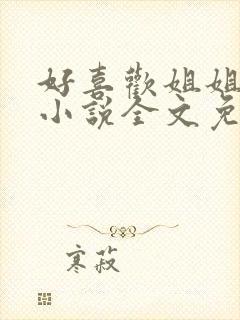 好喜歡姐姐
小說全文免
寒菽